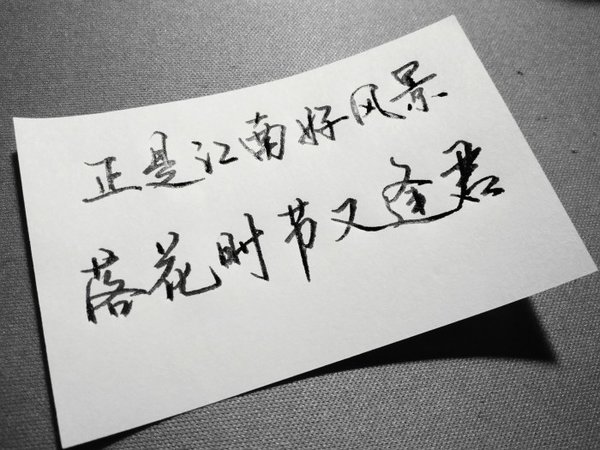 正是江南好风景
落花时节又逢君